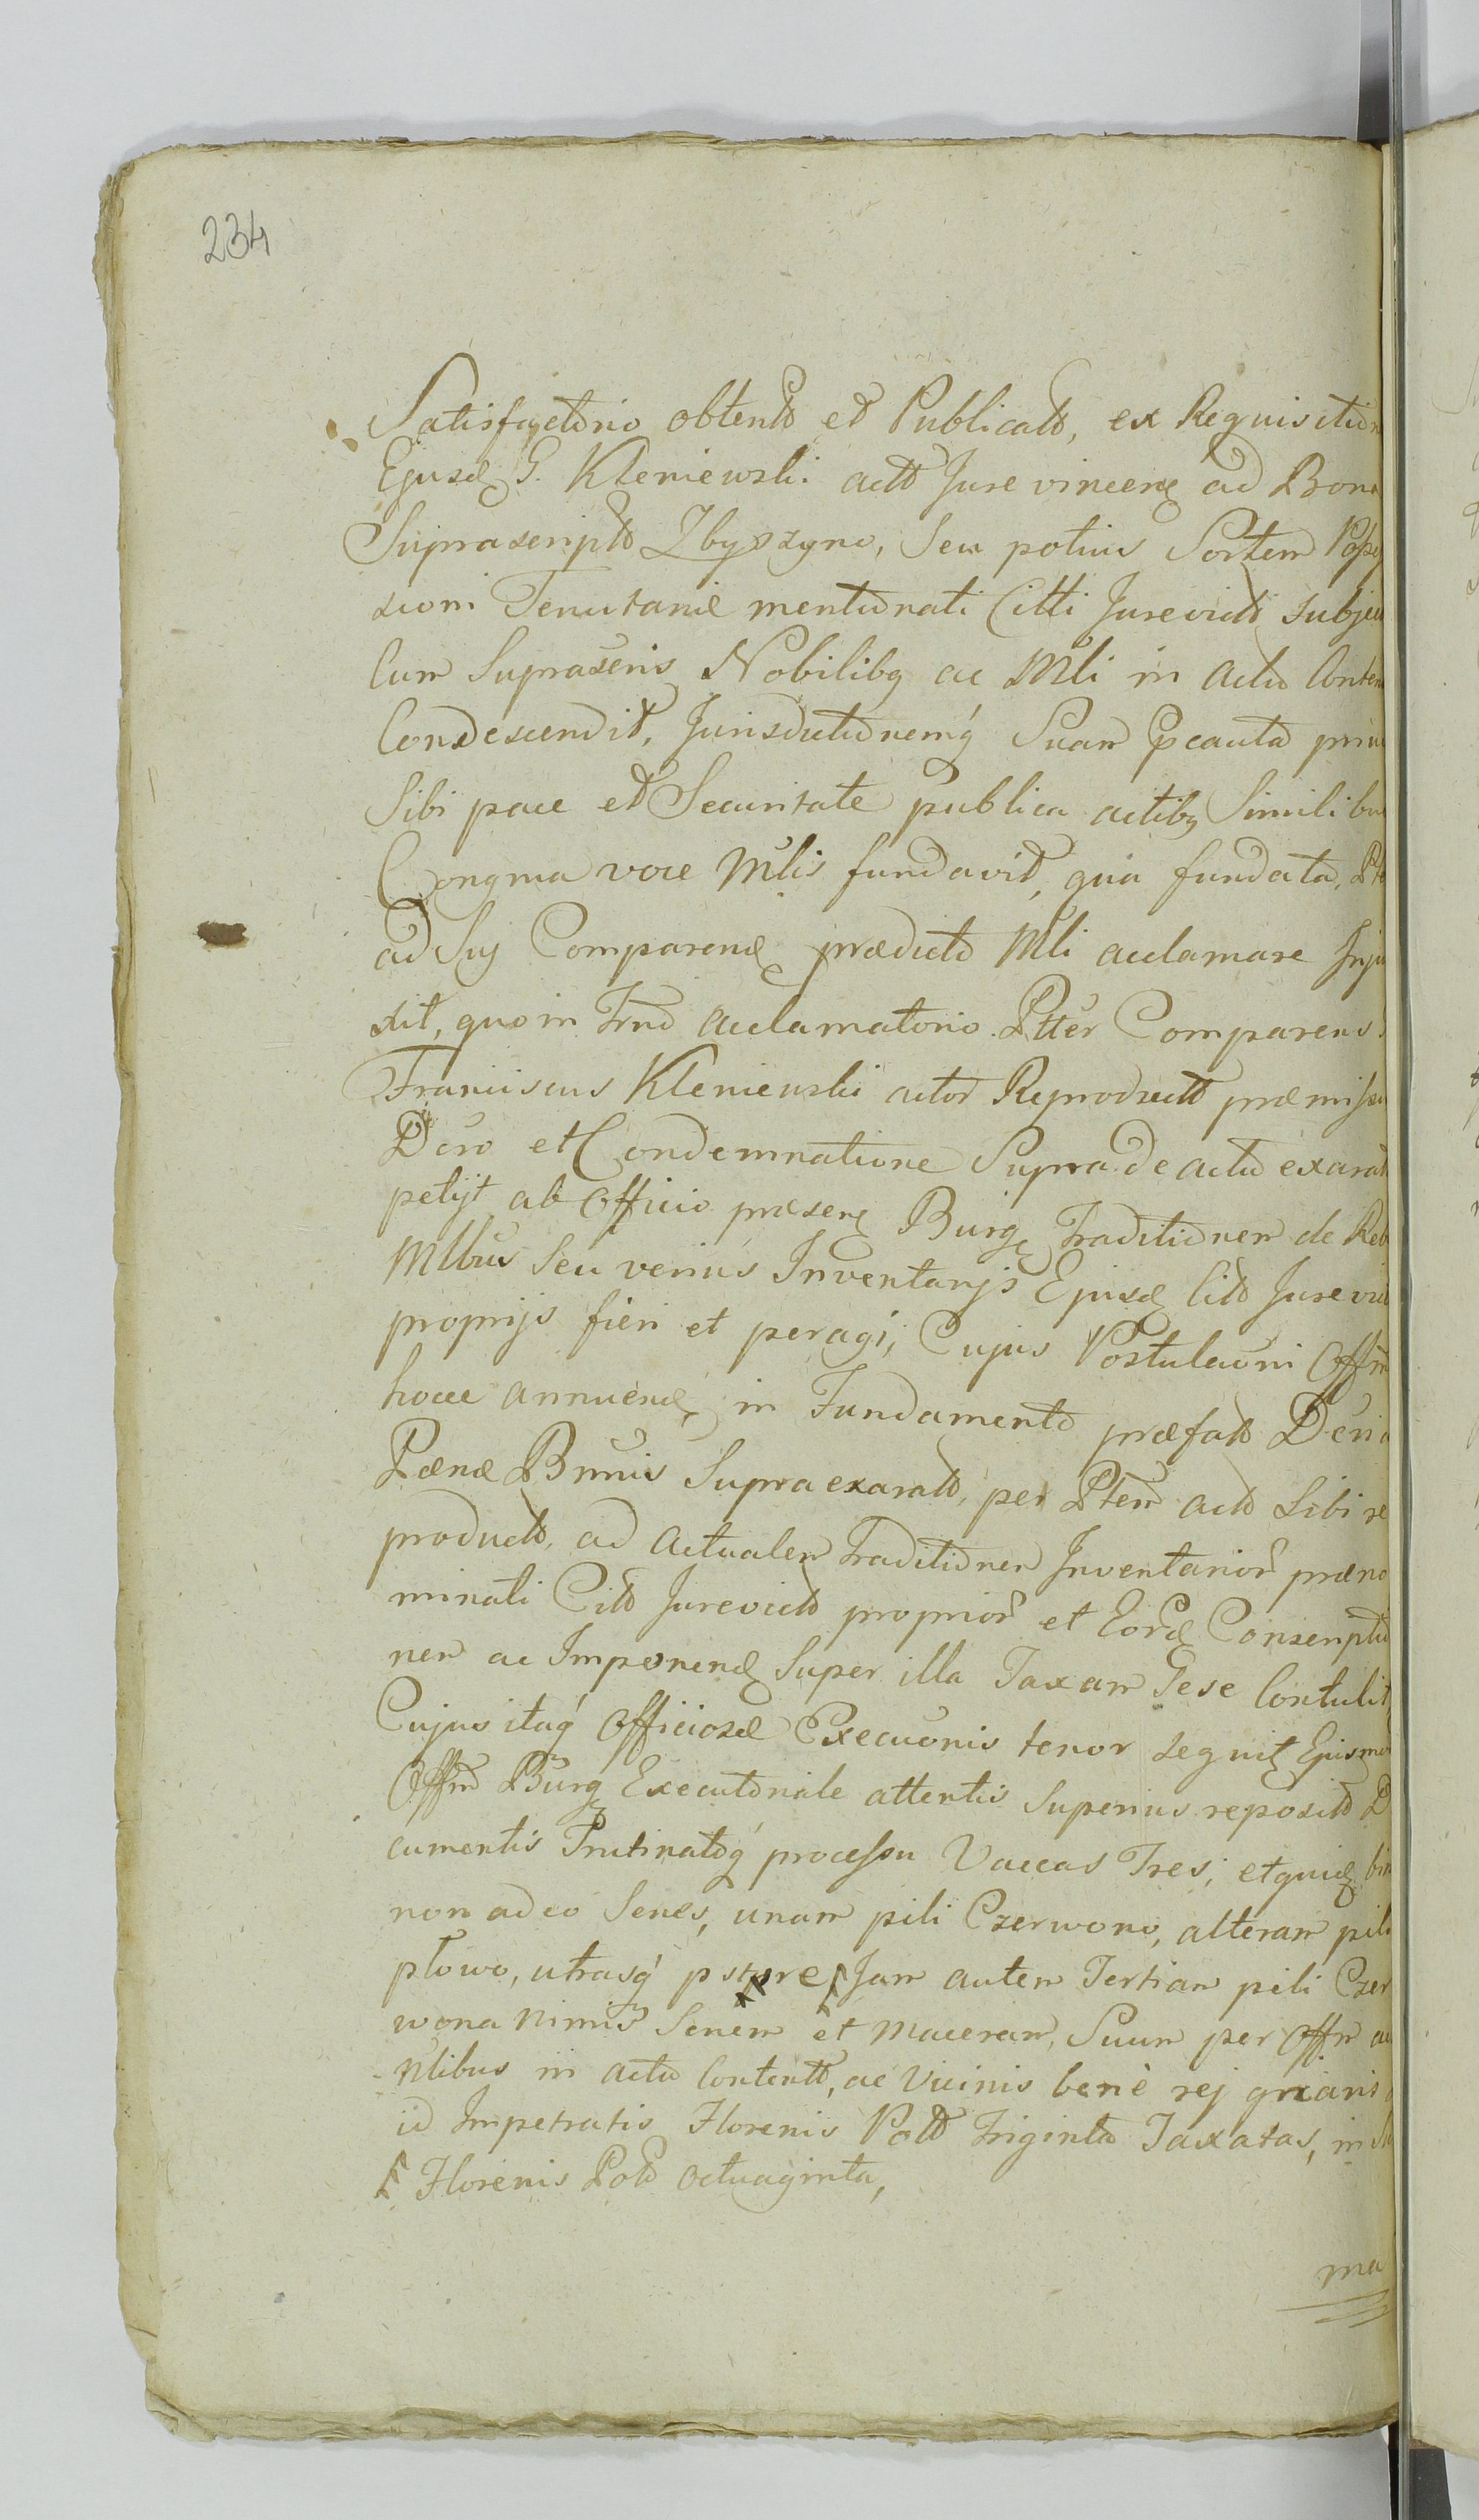 234
Satisfactorio obtento et Publicato, ex Requisitio
Ejusd G. Kleniewski acto Jure vincen ad Bona
Suprascripto Zbyszyno, Seu potius Sortem Posse
ssioni Tenutariae mentionati Citti Jurevicti subje
Cum Suprascris Nobilibq ac Mtli in actu Conten
Condescendit, Jurisdictionemq Suam Pcauta prius
Sibi pace et Securitate publica actibq Similibus
Congrua voce Mtlis fundavit, qua fundata,
ad Sui Comparend praedicto Mtli acclamare Inju
xit, quo in Trno acclamatorio Ptter Comparens
Franciscus Kleniewski actor Reproducto praemisso
Dcro et Condemnatione Supra de actu exarat
petijt ab Officio praesen Burg Traditionem de Reb
Mlbus Seu verius Inventarijs Ejusd Cito Jurevict
proprijs fieri et peragi, Cujus Postulaoni Offm
hocce annuend, in Fundamento praefato Decri
Paenae Bnnis Supra exarato, per Ptem acto Sibi re
producto, ad actualem Traditionem Inventarior praeno
minati Cito Jurevicto proprior et Eord Conscriptio
nem ac Imponend Super illa Taxam Sese Contulit,
Cujus itaq Officiosae Execuonis tenor sequit Ejusmo
Offm Burg Executoriale attentis Superius reposito D
cumentis Trutinatoq processu Vaccas Tres, et quid bin
non adeo Senes, unam pili Czerwono, alteram pili
płowo, utrasq pstre, Jam autem Tertiam pili Czer
wona nimis Senem et maceram, Suum per Offm ac
Nlibus in actu Contento, ac Vicinis benè rej gnaris
id Impetratis Florenis Polo Triginta Taxatas, in
Florenis Polo Octuaginta,
ma